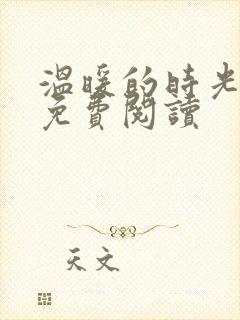 溫暖的時光
免費閱讀
天文